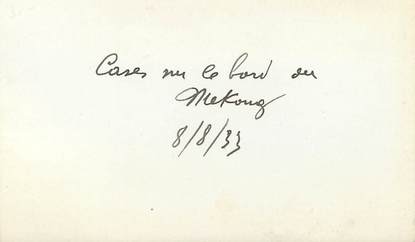 Cases sur le bord du
Mekong
8/8/33